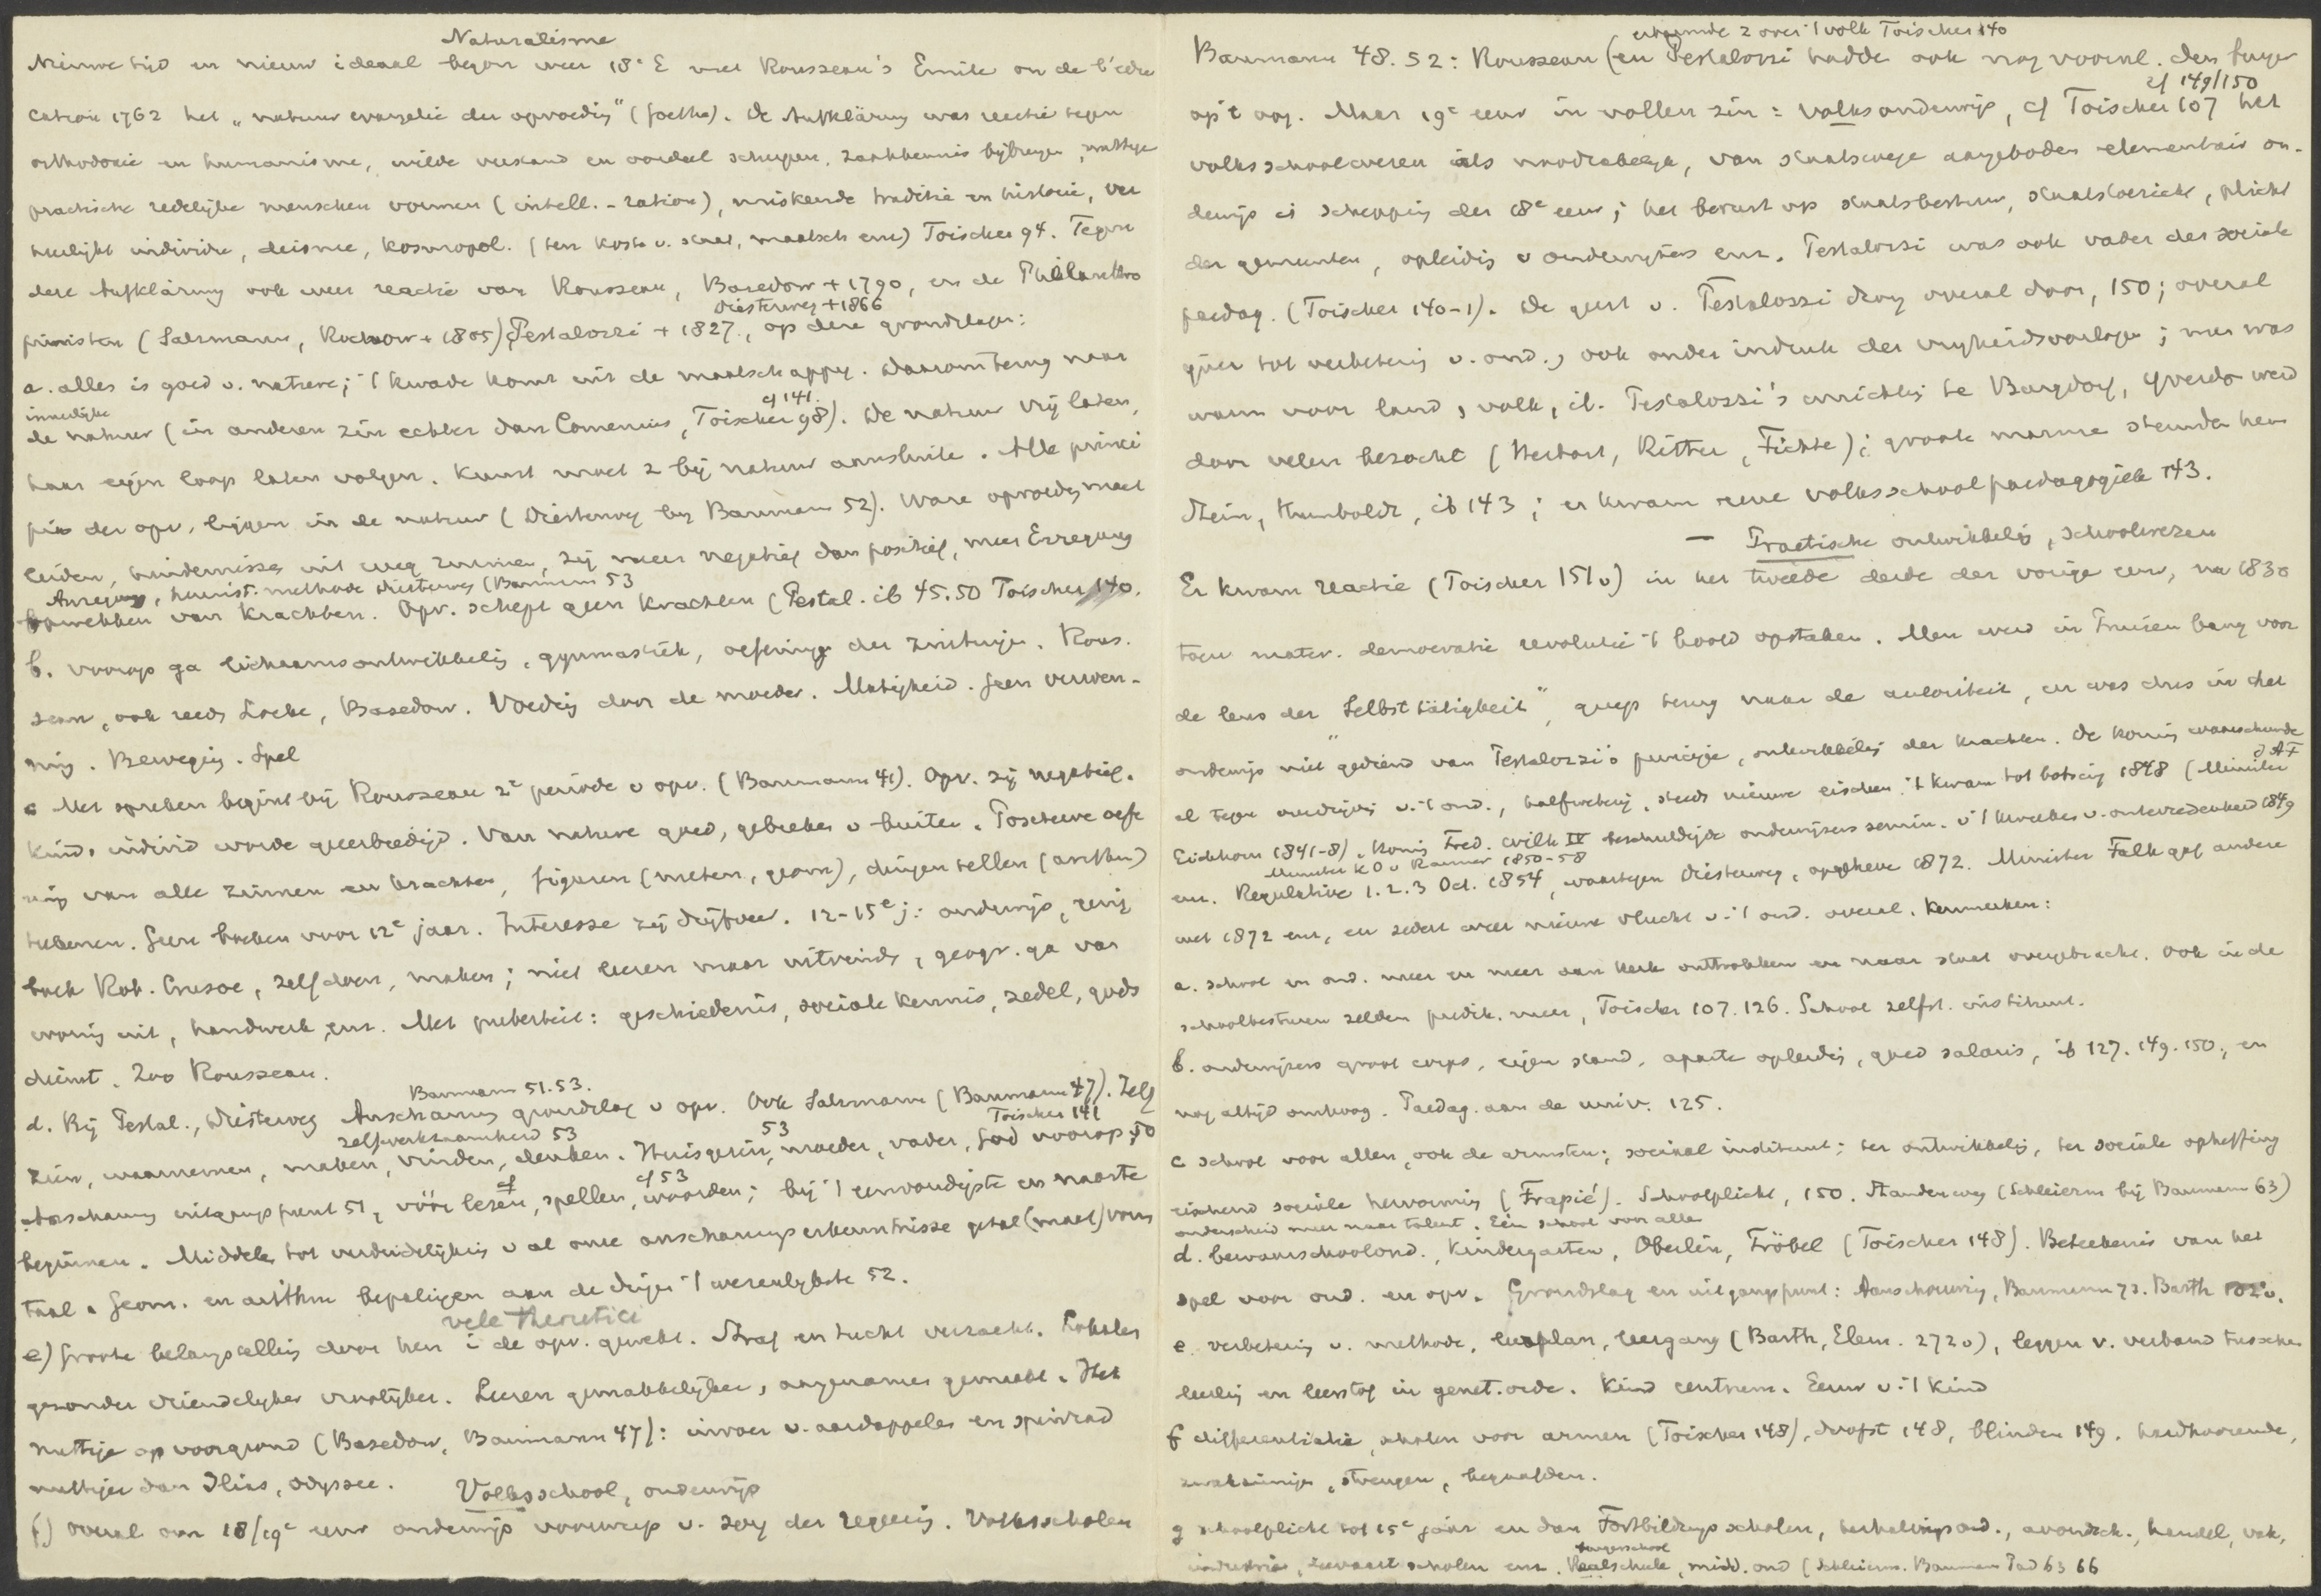 Naturalisme
Nieuwe tijd en nieuw ideaal begon weer 18e E met Rousseau's Emile ou de l'édu
cation 1762 het „natuur evangelie der opvoedig" (Goethe). De Aufklärung was reactie tegen
orthodoxie en humanisme, wilde verstand en oordeel scherpen, zaakkennis bijbrengen, nuttige
practische redelijke menschen vormen (intell. - ration), miskende traditie en historie, ver
heerlijkt individu, deisme, kosmopol. (ten koste v. staat, maatsch enz) Toischer 94. Tegen
deze Aufklärung ook weer reactie van Rousseau, Basedow + 1790, en de Philanthro
Diesterweg + 1866
pinisten (Salzmann, Rochow + 1805), Pestalozzi + 1827, op deze grondslagen:
a. alles is goed v. nature; 't kwade komt uit de maatschappij. Daarom terug naar
innerlijke cf 141.
de natuur (in anderen zin echter dan Comenius, Toischer 98). De natuur vrij laten,
haar eigen loop laten volgen. Kunst moet z bij natuur aansluite. Alle princi
piën der opv. liggen in de natuur (Diesterweg bij Baumann 52). Ware opvoedg moet
leiden, hindernissen uit weg ruimen, zij meer negatief dan positief, meer Erregung
Anregung, heurist. methode Diesterweg (Baumann 53
opwekken van krachten. Opv. schept geen krachten (Pestal. ib 45.50 Toischer 140.
b. voorop ga lichaamsontwikkelig, gymnastiek, oefening der zintuigen. Rous.
seau, ook reeds Locke, Basedow. Voedig door de moeder. Matigheid. Geen verwen-
ning. Bewegig. Spel
c Met spreken begint bij Rousseau 2e periode v opv. (Baumann 41). Opv. zij negatief.
Kind, individ worde geeerbiedigd. Van nature goed, gebreken v buiten. Positieve oefe
ning van alle zinnen en krachten, figuren (meten, geom), dingen tellen (arithm)
teekenen. Geen boeken voor 12e jaar. Interesse zij drijfveer. 12-15e j: onderwijs, eenig
boek Rob. Crusoe, zelf doen, maken; niet leeren maar uitvinden, geogr. ga van
woning uit, handwerk, enz. Met puberteit: geschiedenis, sociale kennis, zedel, gods
dienst. Zoo Rousseau.
Baumann 51.53.
d. Bij Pestal., Diesterweg Anschauung grondslag v opv. Ook Salzmann (Baumann 47). Zelf
zelfwerkzaamheid 53 53 Toischer 141
zien, waarnemen, maken, vinden, denken. Huisgezin, moeder, vader, God voorop, 50
cf cf 53
Anschauung uitgangspunt 51, vóór lezen, spellen, woorden; bij 't eenvoudigste en naaste
beginnen. Middelen tot verduidelijking v al onze anschauungserkenntnisse getal (maat) vorm
taal. Geom. en arithm bepalingen aan de dingen 't wezenlijkste 52.
vele theoretici
e) Groote belangstellig door hen i de opv. gewekt. Straf en tucht verzacht. Lokalen
gezonder vriendelijker vroolijker. Leeren gemakkelijker, aangenamer gemaakt. Het
nuttige op voorgrond (Basedow, Baumann 47): invoer v. aardappelen en spinrad
nuttiger dan Ilias, Odyssee.
Volksschool, onderwijs
f) Overal om 18/19e eeuw onderwijs voorwerp v. zorg der regeerig. Volksscholen
erbarmde z over 't volk Toischer 140
Baumann 48.52: Rousseau (en Pestalozzi hadde ook nog vooral. den burger
cf 149/150
op 't oog. Maar 19e eeuw in vollen zin: volksonderwijs, cf Toischer 107 het
volksschoolwezen als noodzakelijk, van staatswege aangeboden elementair on-
derwijs is schepping der 18e eeuw; het berust op staatsbestuur, staatstoezicht, plicht
der gemeenten, opleidig v onderwijzers enz. Pestalozzi was ook vader der sociale
paedag. (Toischer 140-1). De geest v. Pestalozzi drong overal door, 150; overal
ijver tot verbeterig v. ond., ook onder indruk der vrijheidsoorlogen; men was
warm voor land, volk, ib. Pestalozzi's inrichtig te Burgdorf, Yverdo werd
door velen bezocht (Herbart, Ritter, Fichte); groote mannen steunden hem
Stein, Humboldt, ib 143; er kwam eene volksschoolpaedagogiek 143.
— Practische ontwikkelig, schoolwezen
Er kwam reactie (Toischer 151 v) in het tweede derde der vorige eeuw, na 1830
toen mater. democratie revolutie 't hoofd opstaken. Men werd in Pruisen bang voor
de leus der "Selbsttätigkeit", greep terug naar de autoriteit, en was dus in het
onderwijs niet gediend van Pestalozzi's principe, ontwikkelig der krachten. De koning waarschuwde
al tegen overdrijving v. 't ond., halfweterij, steeds nieuwe eischen; 't kwam tot botsing 1848 (Minister
Eichhorn 1841-8). Konig Fred. Wilh IV beschuldigde onderwijzers semin. v 't kweeken v. ontevredenheid 1849
Minister v. O v Raumer 1850-58
enz. Regulative 1.2.3 Oct. 1854, waartegen Diesterweg, opgeheve 1872. Minister Falk gaf andere
wet 1872 enz, en sedert weer nieuwe vlucht v. 't ond. overal. Kenmerken:
a. school en ond. meer en meer aan kerk onttrokken en naar staat overgebracht. Ook in de
schoolbesturen zelden predik. meer, Toischer 107.126. School zelfst. instituut.
b. onderwijzers groot corps, eigen stand, aparte opleidig, goed salaris, ib 127.149.150., en
nog altijd omhoog. Paedag. aan de univ. 125.
c school voor allen, ook de armsten; sociaal instituut; ter ontwikkelig, ter sociale opheffing
eischend sociale hervormig (Frapié). Schoolplicht, 150. Standen weg (Schleierm bij Baumann 63)
onderscheid meer naar talent. Eén school voor alle
d. bewaarschoolond., Kindergarten, Oberlin, Fröbel (Toischer 148). Beteekenis van het
spel voor ond. en opv. Grondslag en uitgangspunt: Aanschouwing, Baumann 73. Barth
e. verbeterig v. methode, leerplan, leergang (Barth, Elem. 272 v), leggen v. verband tusschen
leerlig en leerstof in genet. orde. Kind centrum. Eeuw v. 't kind
f differentiatie, scholen voor armen (Toischer 148), doofst 148, blinden 149. hardhoorende,
zwakzinnige, begaafden.
g schoolplicht tot 15e jaar en dan Fortbildungsscholen, herhalingsond., avondsch., handel, vak,
burgerschool
industrie, zeevaart scholen enz. Realschule, midd. ond (Schleierm. Baumann 63 66